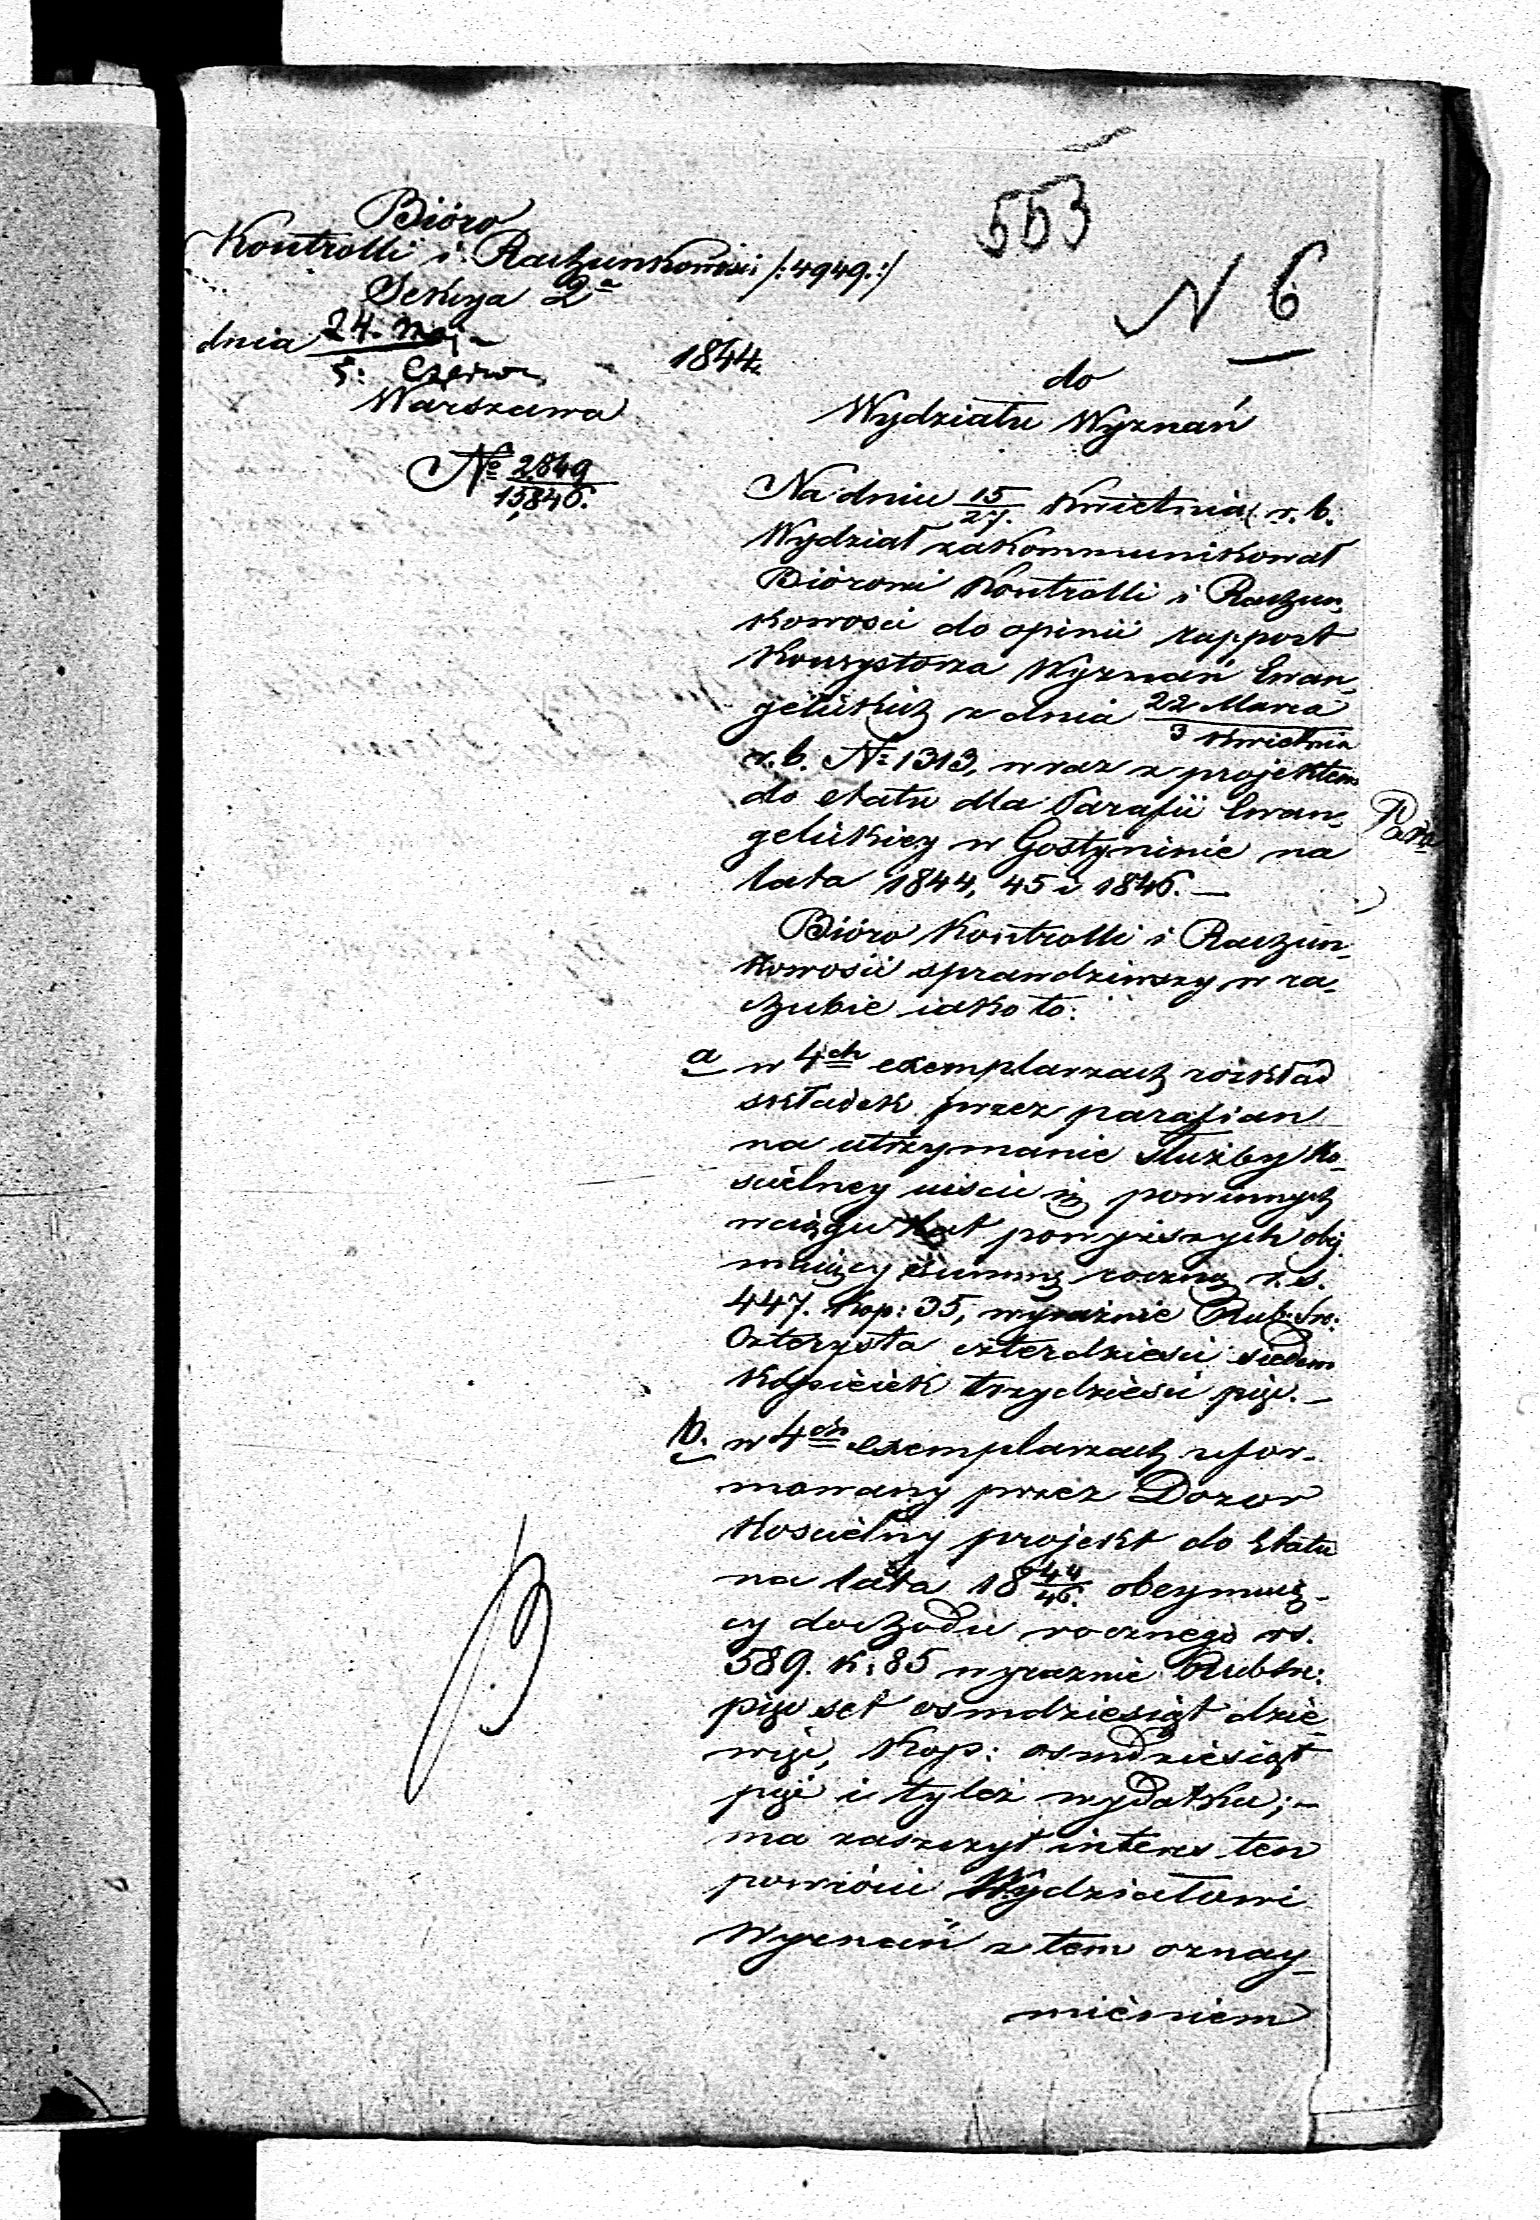 553
N 6
Bióro
Kontrolli i Rachunkowości /:4949.:/
Sekcya 2a
dnia 24. Maj / 5. Czerw. 1844.
Warszawa
No 2849/15,846.
do
Wydziału Wyznań
Na dniu 15/27. Kwietnia r. b.
Wydział zakommunikował
Biórowi Kontrolli i Rachun-
kowości do opinii rapport
Konsystorza Wyznań Ewan-
gelickich z dnia 22 Marca / 3 Kwietnia
r. b. No 1313, wraz z projektem
do etatu dla Parafii Ewan-
gelickiey w Gostyninie na
lata 1844, 45 i 1846. —
Bióro Kontrolli i Rachun-
kowości sprawdziwszy w ra-
chubie iako to:
a w 4ch exemplarzach rozkład
składek przez parafian
na utrzymanie służby Ko-
ścielney uiścić się powinnych
w ciągu lat powyższych obej-
muiący summę roczną r. s.
447. kop: 35, wyraźnie Rub: sr:
Czterysta czterdzieści siedem
kopieiek trzydzieści pięć. —
b. w 4ch exemplarzach ufor-
mowany przez Dozor
Kościelny projekt do Etatu
na lata 1844/46. obeymuią-
cy dochodu rocznego rs.
589. k: 85 wyraznie Rub sr:
pięćset osmdziesiąt dzie-
więć, kop: osmdziesiąt
pięć i tyleż wydatku; —
ma zaszczyt interes ten
powrócić Wydziałowi
Wyznań z tem oznay-
mieniem